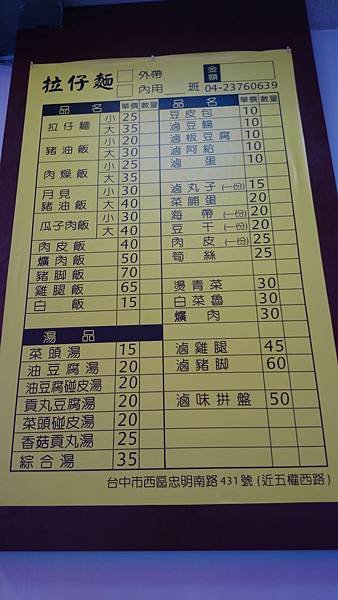 拉仔麵 外帶 金額
內用 班 04-23760639
品名 單價 數量
拉仔麵 小 25
大 35
豬油飯 小 20
大 30
肉燥飯 小 25
大 35
月見豬油飯 小 30
大 40
瓜子肉飯 小 30
大 40
肉皮飯 40
爌肉飯 50
豬脚飯 70
雞腿飯 65
白飯 15
湯品
菜頭湯 15
油豆腐湯 20
油豆腐碰皮湯 20
貢丸豆腐湯 20
菜頭碰皮湯 20
香菇貢丸湯 25
綜合湯 35
品名 單價 數量
豆皮包 10
滷豆輪 10
滷板豆腐 10
滷阿給 10
滷蛋 10
滷丸子(一份) 15
菜脯蛋 20
海帶(一份) 20
豆干(一份) 20
肉皮(一份) 25
筍絲 25
燙青菜 30
白菜魯 30
爌肉 30
滷雞腿 45
滷豬脚 60
滷味拼盤 50
台中市西區忠明南路431號(近五權西路)